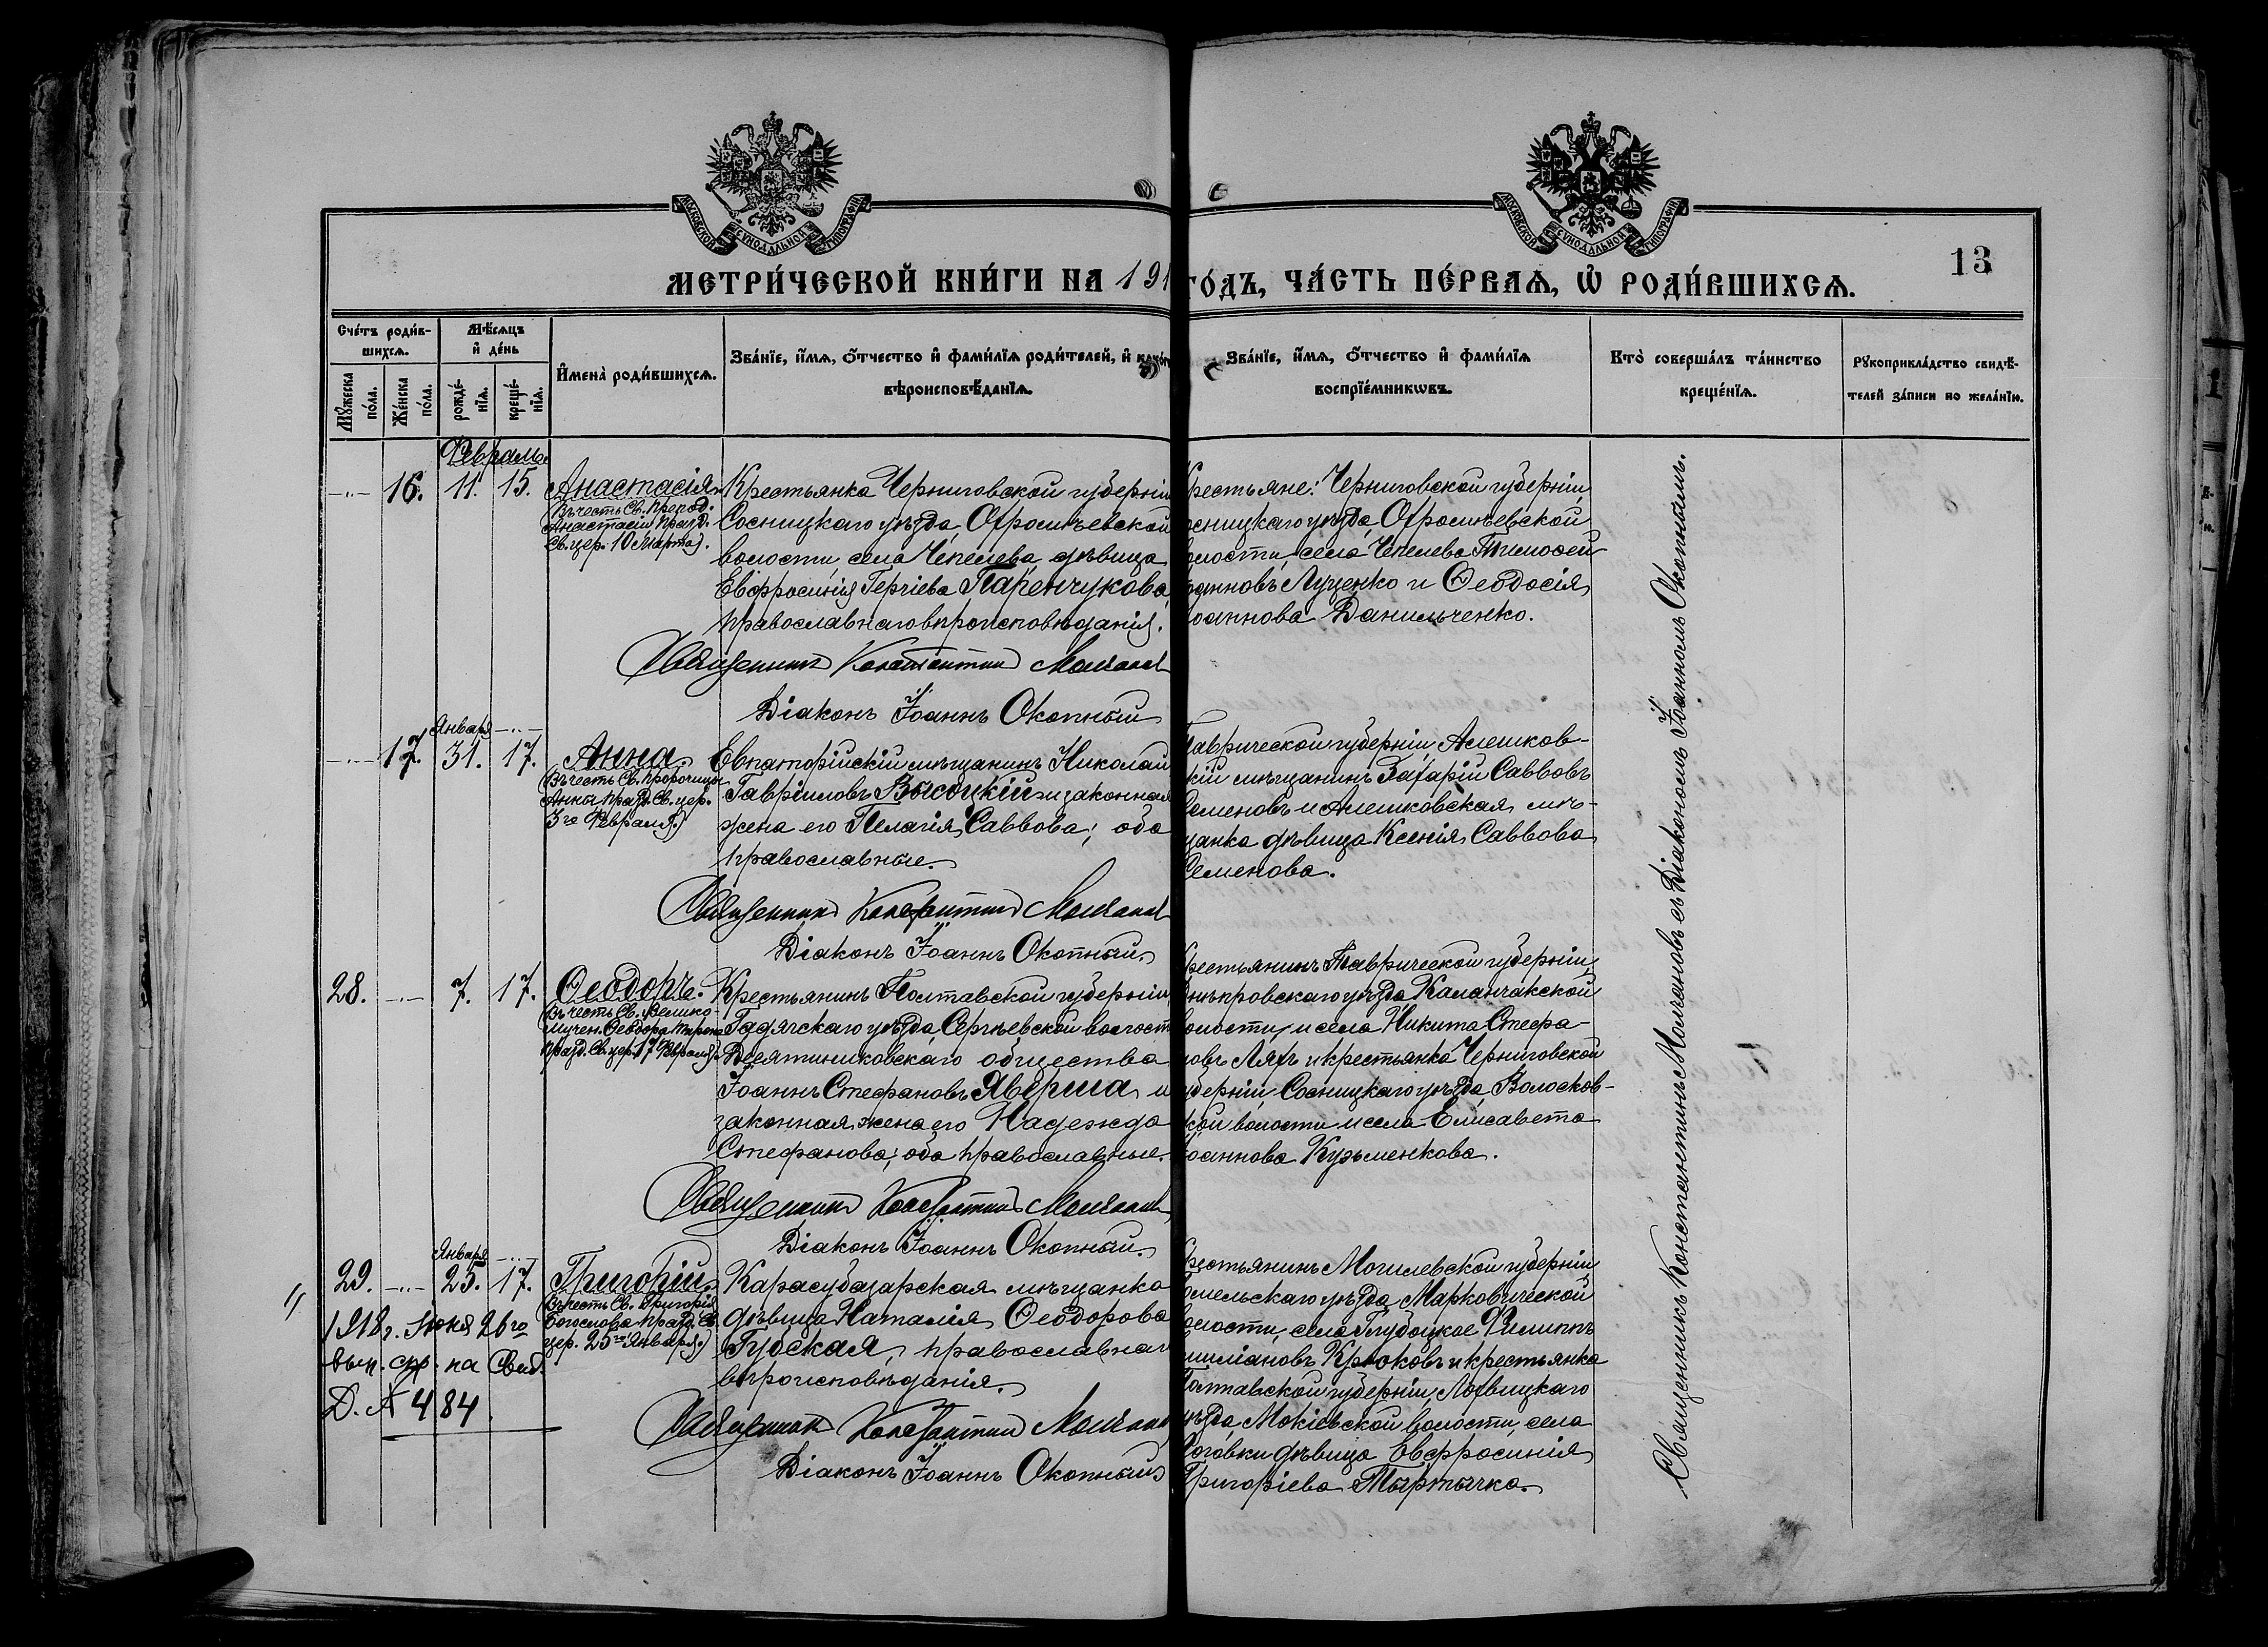 МОСКОВСКОЙ СѴНОДАЛЬНОЙ ТИПОГРАФІИ
МОСКОВСКОЙ СѴНОДАЛЬНОЙ ТИПОГРАФІИ
13
МЕТРИ́ЧЕСКОЙ КНИ́ГИ НА 191
ГО́ДЪ, ЧА́СТЬ ПЕ́РВАѦ, Ѿ РОДИ́ВШИХСѦ.
Сче́тъ роди́в-
шихсѧ.
Мꙋ́жеска по́ла.
Же́нска по́ла.
Мѣ́сѧцъ
и҆ де́нь
рожде́-
нїѧ.
креще́-
нїѧ.
И҆мена̀ роди́вшихсѧ.
Зва́нїе, и҆́мѧ, ѻ҆́тчество и҆ фами́лїѧ роди́телей, и҆ како́г
вѣроисповѣ́данїѧ.
Зва́нїе, и҆́мѧ, ѻ҆́тчество и҆ фами́лїѧ
воспрїе́мникѡвъ.
Кто̀ соверша́лъ та́инство
креще́нїѧ.
Рꙋкоприкла́дство свидѣ́-
телей за́писи по жела́нїю.
Февраль.
-"- 16. 11. 15.
Анастасія
(Въ честь Св. препод.
Анастасіи празд.
Св. цер. 10 марта).
Крестьянка Черниговской губерніи
Сосницкаго уѣзда,
волости, села Чепелева, дѣвица
Евфросинія Гергіева Паренчукова,
православнаго вѣроисповѣданія.
Священникъ Константинъ Молчанов
Діаконъ Іоаннъ Окопный
рестьяне: Черниговской губерніи,
осницкаго уѣзда,
олости, села Чепелева Тимоѳей
оанновъ Луценко и Ѳеодосія
оаннова Данильченко.
Января -"-
-"- 17. 31. 17.
Анна.
(Въ честь Св. пророчицы
Анны празд. Св. цер.
3го Февраля.)
Евпаторійскій мѣщанинъ Николай
Гавріиловъ Высоцкій и законная
жена его Пелагія Саввова; оба
православные.
Священникъ Константинъ Молчанов
Діаконъ Іоаннъ Окопный.
Таврической губерніи, Алешков-
скій мѣщанинъ Захарій Саввовъ
Семеновъ и Алешковская мѣ-
щанка дѣвица Ксенія Саввова
Семенова.
28. -"- 7. 17.
Ѳеодоръ.
(Въ честь Св. Велико-
мучен. Ѳеодора Тирона
празд. Св. цер. 17 Февраля).
Крестьянинъ Полтавской губерніи,
Гадячскаго уѣзда, Сергѣевской волост
Десятниковскаго общества
Іоаннъ Стефановъ Яверша и
законная жена его Надежда
Стефанова; оба православные.
Священникъ Константинъ Молчанов
Діаконъ Іоаннъ Окопный.
рестьянинъ Таврической губерніи,
нѣпровскаго уѣзда, Каланчакской
волости и села Никита Стефа-
новъ Ляхъ и крестьянка Черниговской
уберніи, Сосницкаго уѣзда, Волосков-
ской волости и села Елисавета
Іоаннова Кузьменкова.
Января -"-
29. -"- 25. 17.
Григорій
(Въ честь Св. Григорія
Богослова празд. Св.
цер. 25го Января.)
1918 г. Іюня 26го
вып. спр. на Свид.
Д. № 484
Карасубазарская мѣщанка
дѣвица Наталія Ѳеодорова
Губская, православнаг
вѣроисповѣданія.
Священникъ Константинъ Молчанов
Діаконъ Іоаннъ Окопный
рестьянинъ Могилевской губерніи,
омельскаго уѣзда, Марковической
волости, села Глубоцкое Филиппъ
Крюковъ и крестьянка
Полтавской губерніи, Лохвицкаго
уѣзда, Мокіевской волости, села
дѣвица Евфросинія
Григоріева Тыртычка.
Священникъ Константинъ Молчановъ съ Діакономъ Іоанномъ Окопнымъ.